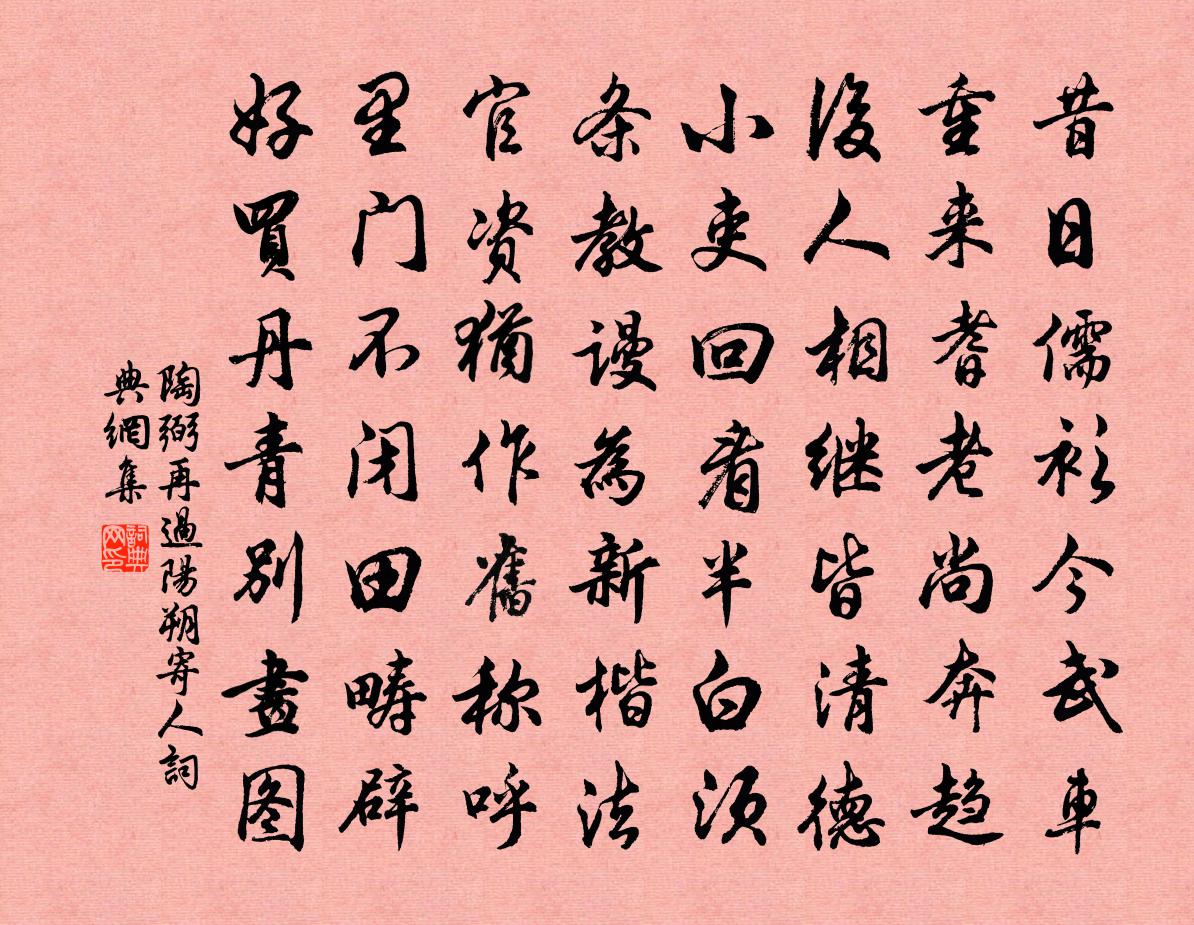 昔日儒衫今武車
重来耆老尚奔趋
後人相继皆清德
小吏回看半白须
条教谩為新楷法
官资犹作舊称呼
里门不闭田畴辟
好買丹青别畫图
陶弼再過陽朔寄人詞
典網集
詞典网印